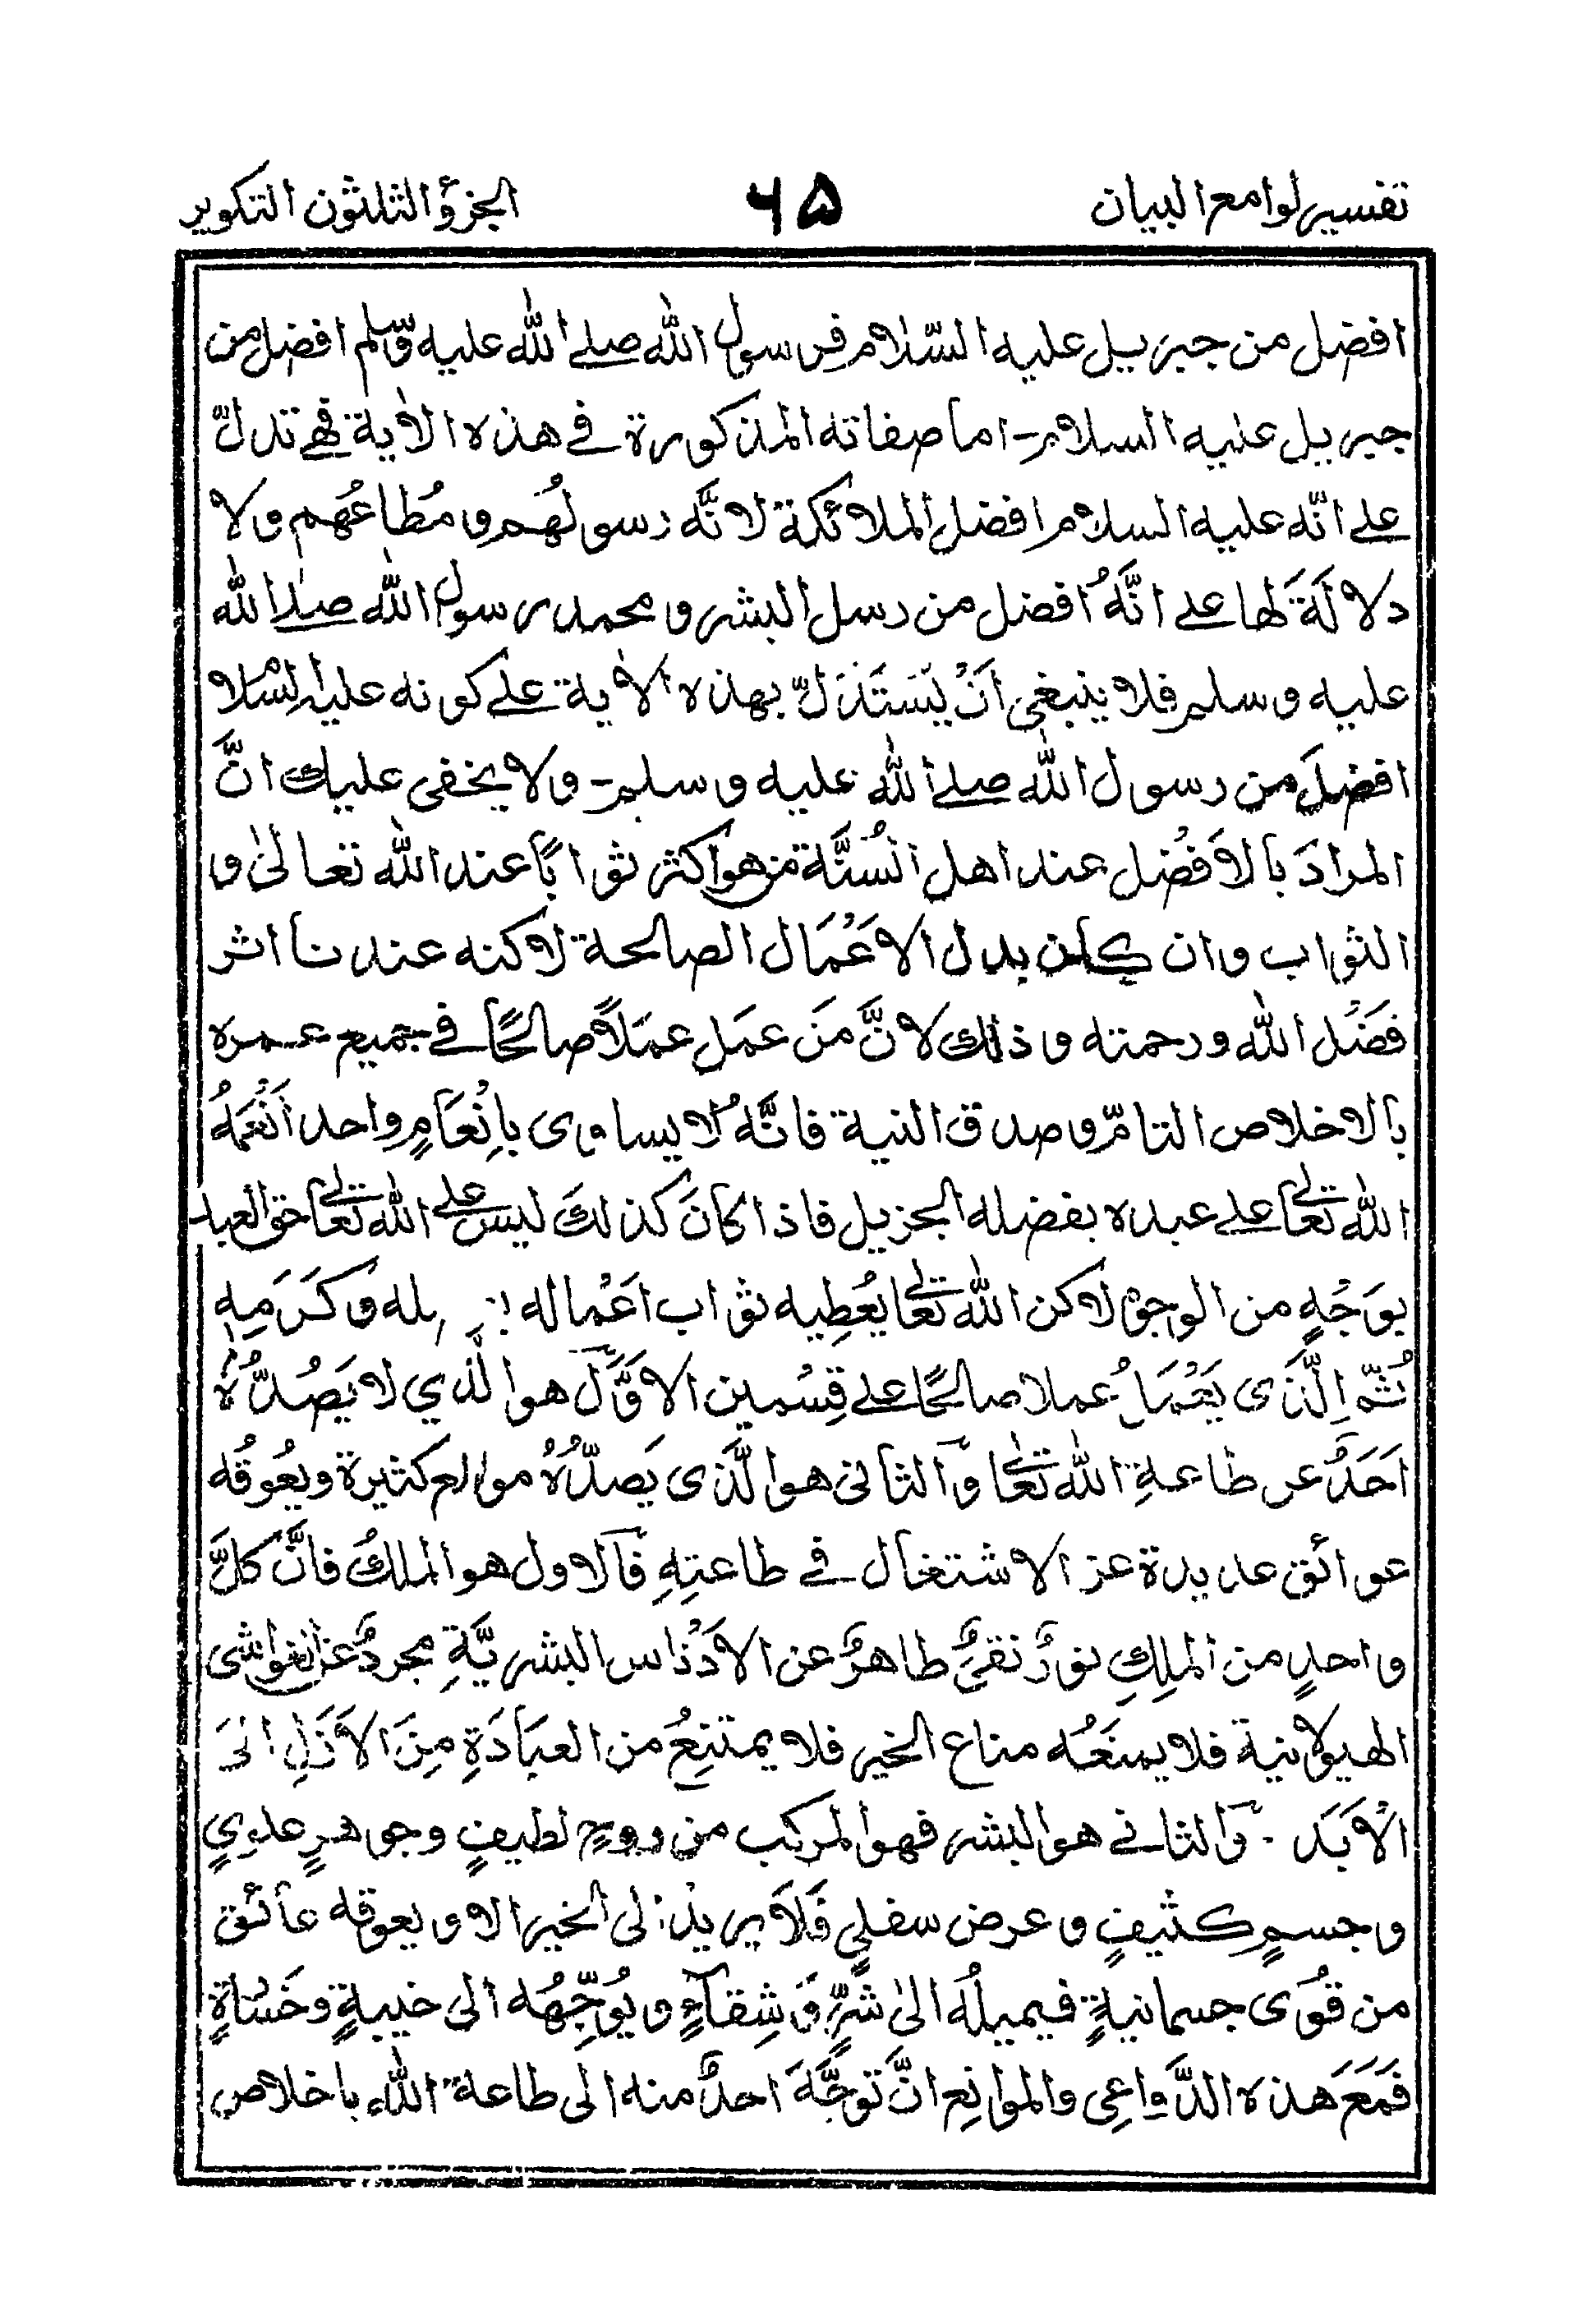 تفسير لوامع البيان ٦٥ الجزؤ الثلثون التكوير
افضل من جبريل عليه السّلام فرسول الله صلے الله عليه وسّلم افضل من
جبريل عليه السلام- اما صفاته المذكورة فے هذه الاٰية فهے تدلّ
علے انّه عليه السلام افضل الملائكة لانَّه رسولُهُم ومُطاعُهم ولا
دلالَةَ لها علے انَّهُ افضل من رسل البشر ومحمد رسول الله صلے الله
عليه وسلم فلا ينبغى اَنْ يَسْتَدَلّ بهذه الاٰية علے كونه عليه السّلام
افضلَ من رسول الله صلے الله عليه وسلم- ولا يخفى عليك انَّ
المرادَ بالاَفضْل عند اهل السُنَّة من هو اكثر ثوابًا عند الله تعالىٰ و
الثواب وان كان بدل الاعْمَال الصالحة لاكنه عندنا اثر
فَضْل الله ورحمته وذلك لانَّ مَن عمَل عمَلاً صالحًا فے جميع عمره
بالاخلاص التامّ وصدق النية فانَّهُ لايساوى بِانْعَامٍ واحد اَنْعَمَهُ
الله تعالىٰ علے عبده بفضله الجزيل فاذا كانَ كذلكَ ليس علے الله تعالىٰ حق العباد
بوَجْهٍ من الوجوه لاكن الله تعالىٰ يُعْطِيه ثواب اَعْماله وكَرَمِهٖ
ثُمّ الَّذى يَعْمَلُ عملا صالحًا علے قِسْمين الاوَّل هو الَّذي لا يَصُدُّهٗ
اَحَدٌ عن طاعةِ الله تعالىٰ والثانى هو الَّذى يَصدُّهٗ موانع كثيرة ويعُوقُه
عوائق عديدة عن الاشتغال فے طاعتِهٖ فالاول هو الملكُ فانَّ كلَّ
واحدٍ من الملكِ نورٌ نقىٌّ طاهرٌ عن الاَدْناس البشريَّةِ مجردٌ عن الغواشى
الهيولانية فلا يمنَعُه مناع الخير فلا يمتنِعُ من العبَادَةِ مِنَ الاَزَلِ الىَ
الاَبَد. والثانے هو البشر فهو المركب من روحٍ لطيفٍ وجوهرٍ علوىٍ
وجسمٍ كثيفٍ وعرض سفلىٍ فَلاَ يريد الى الخير الا ويعوقه عائق
من قُوَى جسمانيةٍ فيميلُه الىٰ شَرٍّ وَشِقآءٍ ويُوَجِّهُه الى خيبةٍ وخَسَاةٍ
فَمَعَ هذه الدَّواعِى والموانعِ انَّ توجَّهَ احدٌ منه الى طاعة الله باخلاص